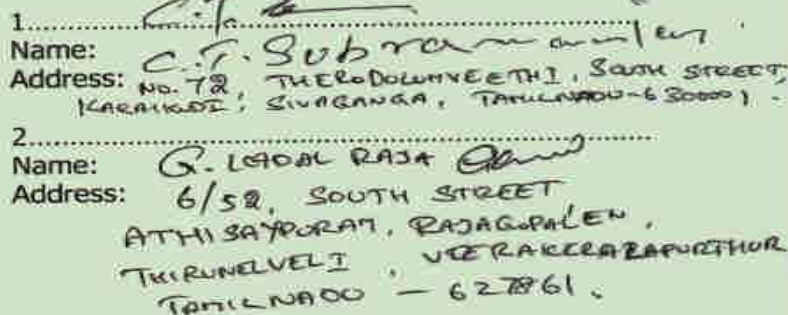 1
Name: C.T. Subramanian
Address: NO. 72, THERODOLUMVEETHI, SOUTH STREET,
KARAIKUDI, SIVAGANGA, TAMILNADU-630001.
2
Name: G. LOADAL RAJA
Address: 6/52, SOUTH STREET
ATHISAYPURAM, RAJAGOPALEN,
THIRUNELVELI,
TAMILNADU - 627861.